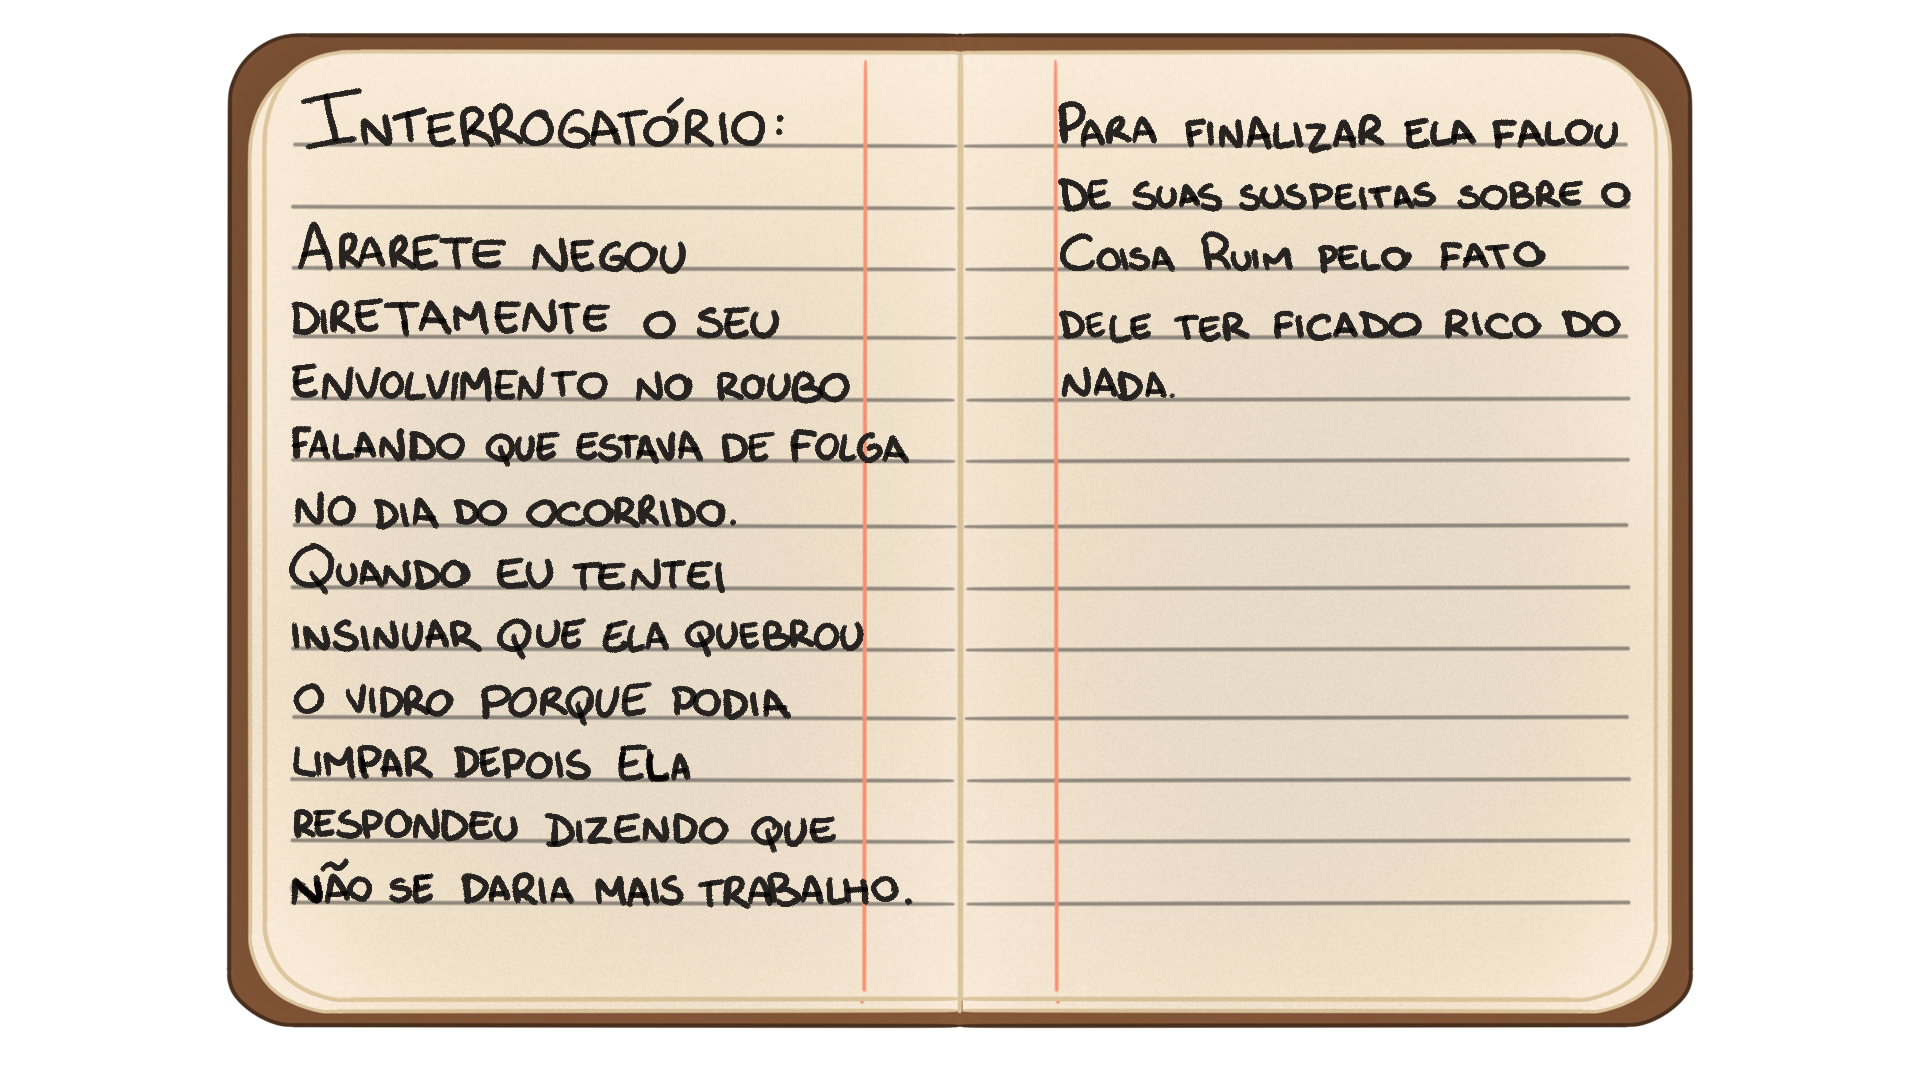 INTERROGATÓRIO:
ARARETE NEGOU
DIRETAMENTE O SEU
ENVOLVIMENTO NO ROUBO
FALANDO QUE ESTAVA DE FOLGA
NO DIA DO OCORRIDO.
QUANDO EU TENTEI
INSINUAR QUE ELA QUEBROU
O VIDRO PORQUE PODIA
LIMPAR DEPOIS ELA
RESPONDEU DIZENDO QUE
NÃO SE DARIA MAIS TRABALHO.
PARA FINALIZAR ELA FALOU
DE SUAS SUSPEITAS SOBRE O
COISA RUIM PELO FATO
DELE TER FICADO RICO DO
NADA.